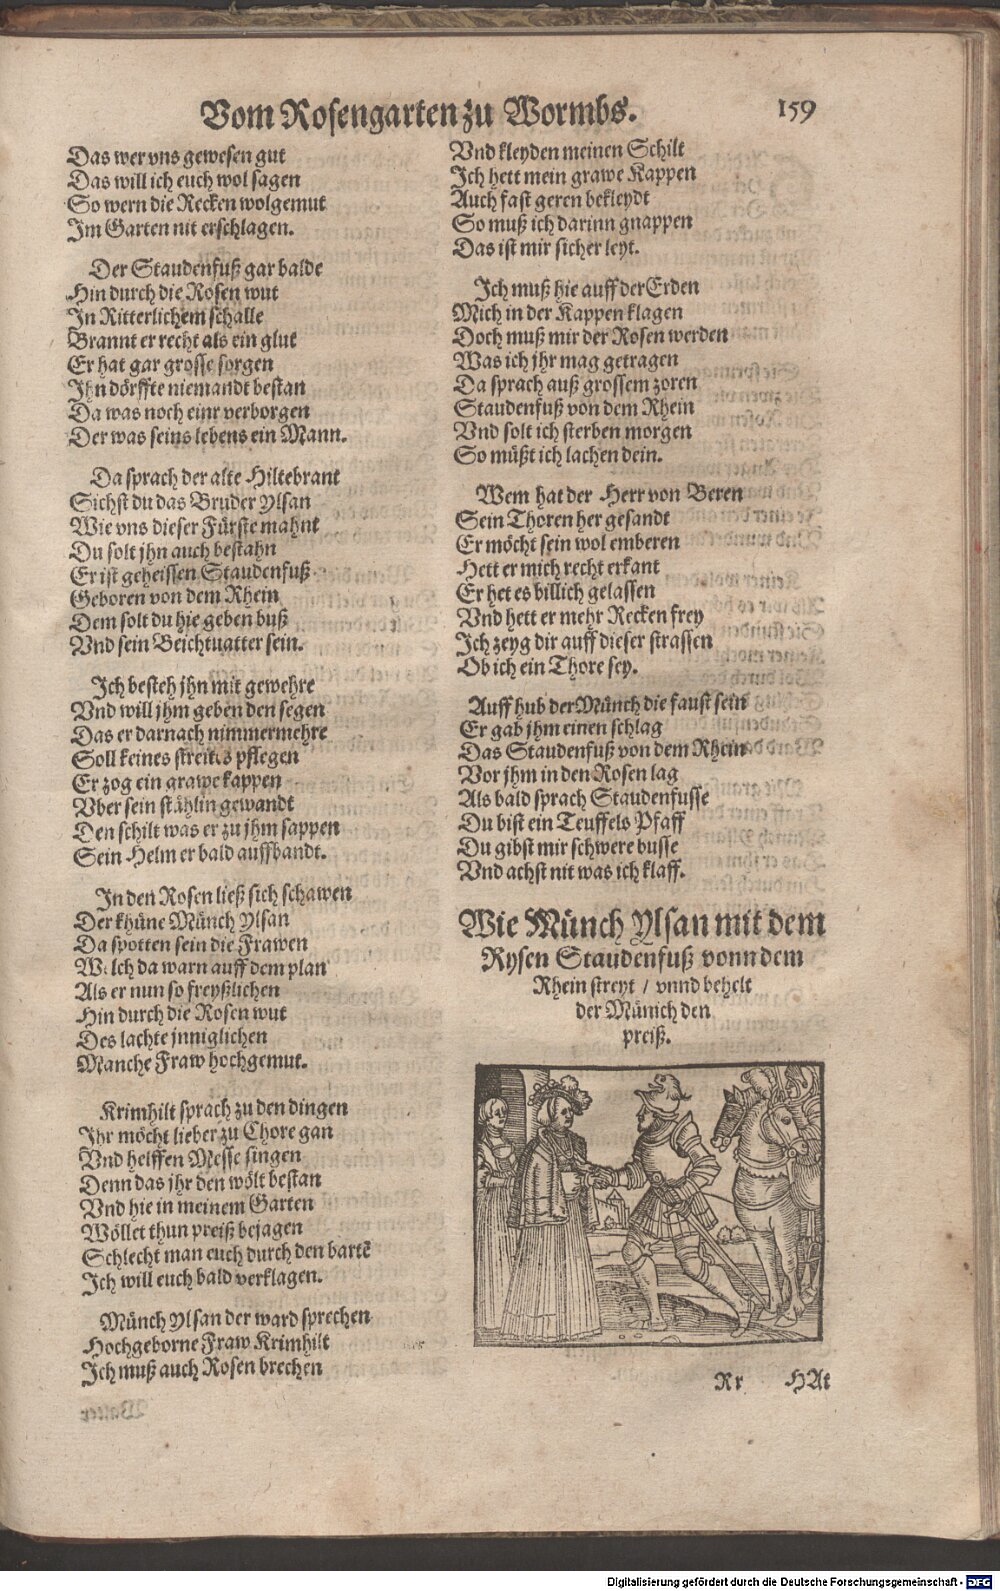 Vom Rosengarten zu Wormbs.
159
Das wer vns gewesen gut
Das will ich euch wol sagen
So wern die Recken wolgemut
Im Garten nit erschlagen.
Der Staudenfuß gar balde
Hin durch die Rosen wut
In Ritterlichem schalle
Brannt er recht als ein glut
Er hat gar grosse sorgen
Ihn dörffte niemandt bestan
Da was noch einr verborgen
Der was seins lebens ein Mann.
Da sprach der alte Hiltebrant
Sichst du das Bruder Ylsan
Wie vns dieser Fürste mahnt
Du solt jhn auch bestahn
Er ist geheissen Staudenfuß
Geboren von dem Rhein
Dem solt du hie geben buß
Vnd sein Beichtuatter sein.
Ich besteh jhn mit gewehre
Vnd will jhm geben den segen
Das er darnach nimmermehre
Soll keines streites pflegen
Er zog ein grawe kappen
Vber sein stählin gewandt
Den schilt was er zu jhm sappen
Sein Helm er bald auffbandt.
In den Rosen ließ sich schawen
Der khüne Münch Ylsan
Da spotten sein die Frawen
Welch da warn auff dem plan
Als er nun so freyßlichen
Hin durch die Rosen wut
Des lachte jnniglichen
Manche Fraw hochgemut.
Krimhilt sprach zu den dingen
Ihr möcht lieber zu Chore gan
Vnd helffen Messe singen
Denn das jhr den wölt bestan
Vnd hie in meinem Garten
Wöllet thun preiß bejagen
Schlecht man euch durch den bartẽ
Ich will euch bald verklagen.
Münch Ylsan der ward sprechen
Hochgeborne Fraw Krimhilt
Ich muß auch Rosen brechen
Vnd kleyden meinen Schilt
Ich hett mein grawe Kappen
Auch fast geren bekleydt
So muß ich darinn gnappen
Das ist mir sicher leyt.
Ich muß hie auff der Erden
Mich in der Kappen klagen
Doch muß mir der Rosen werden
Was ich jhr mag getragen
Da sprach auß grossem zoren
Staudenfuß von dem Rhein
Vnd solt ich sterben morgen
So müßt ich lachen dein.
Wem hat der Herr von Beren
Sein Thoren her gesandt
Er möcht sein wol emberen
Hett er mich recht erkant
Er het es billich gelassen
Vnd hett er mehr Recken frey
Ich zeyg dir auff dieser strassen
Ob ich ein Thore sey.
Auff hub der Münch die faust sein
Er gab jhm einen schlag
Das Staudenfuß von dem Rhein
Vor jhm in den Rosen lag
Als bald sprach Staudenfusse
Du bist ein Teuffels Pfaff
Du gibst mir schwere busse
Vnd achst nit was ich klaff.
Wie Münch Ylsan mit dem
Rysen Staudenfuß vonn dem
Rhein streyt / vnnd behelt
der Münich den
preiß.
Rr HAt
Digitalisierung gefördert durch die Deutsche Forschungsgemeinschaft - DFG